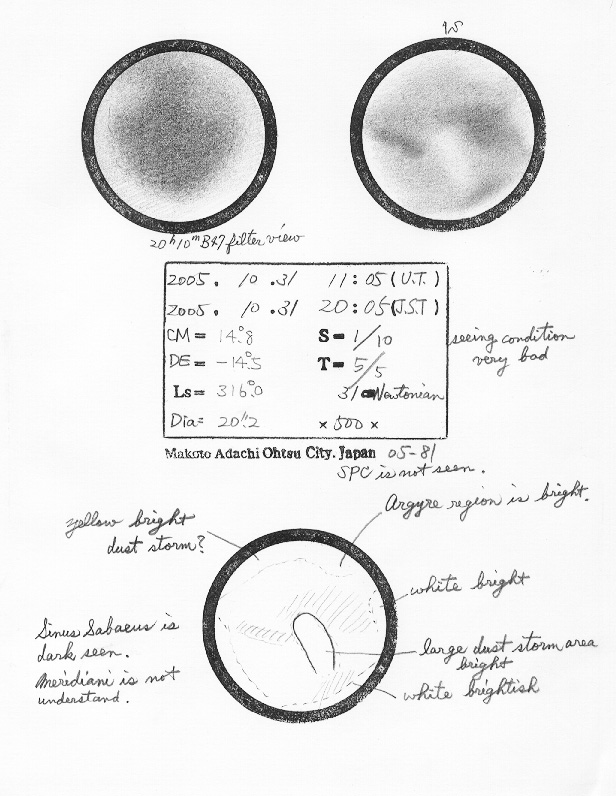 20h10m B47 filter view
2005. 10 .31 11:05 (U.T.)
2005. 10 .31 20:05 (J.S.T)
CM= 14°.8 S= 1/10
DE= -14°.5 T= 5/5
Ls= 316°.0 31 Newtonian
Dia= 20".2 ×500×
seeing condition
very bad
Makoto Adachi Ohtsu City. Japan 05-81
SPC is not seen.
Argyre region is bright.
yellow bright
dust storm?
white bright
Sinus Sabaeus is
dark seen.
Meridiani is not
understand.
large dust storm area
bright
white brightish